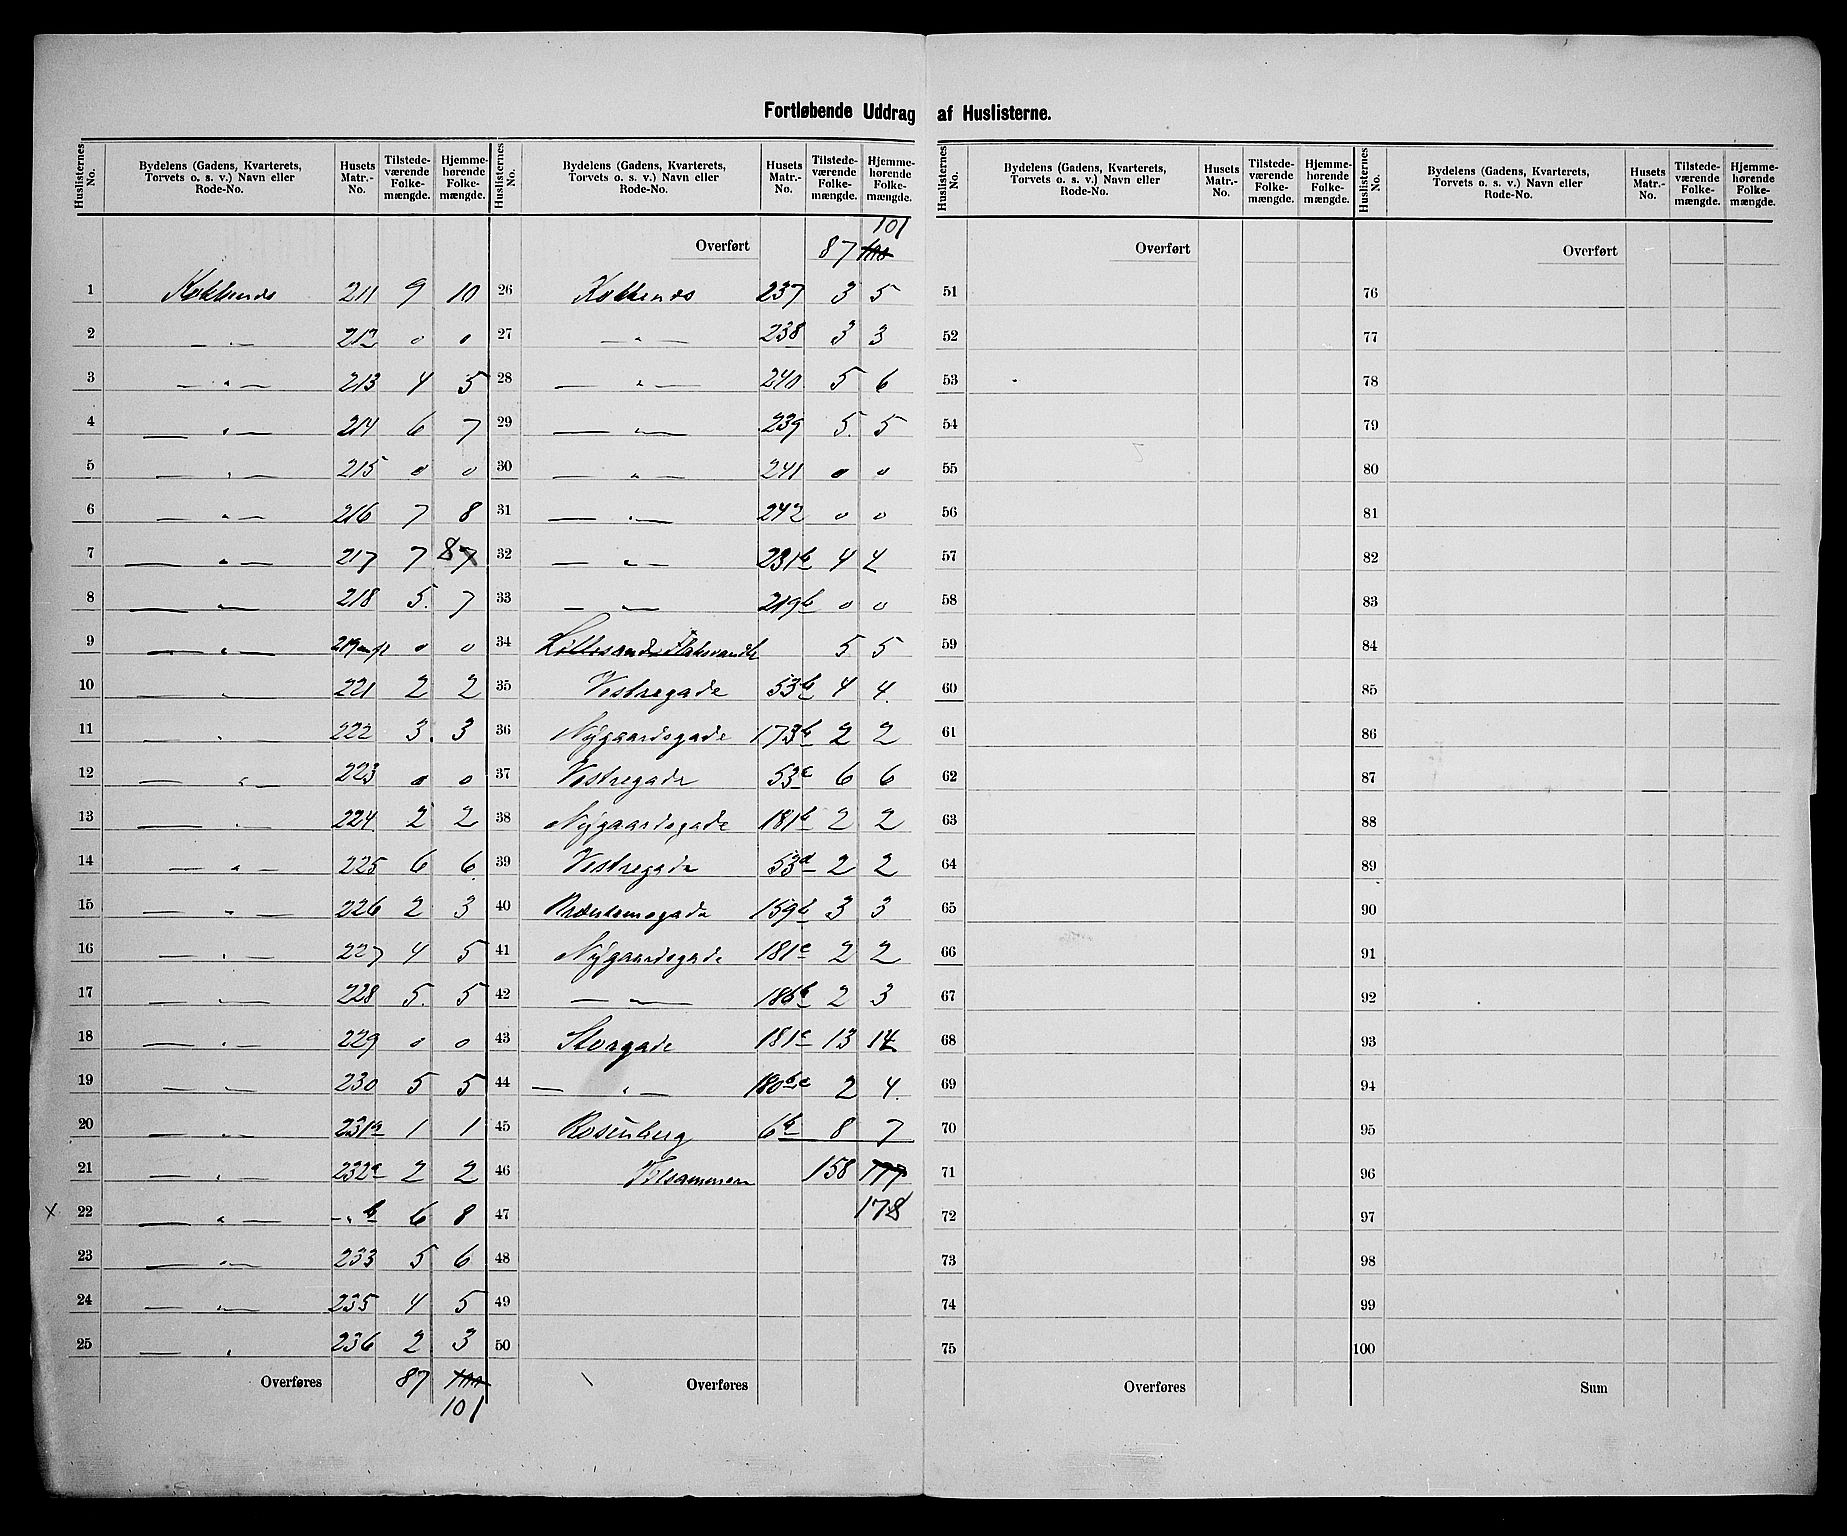 Fortløbende Uddrag af Huslisterne.
Huslisternes No. Bydelens (Gadens, Kvarterets, Torvets o. s. v.) Navn eller Rode-No. Husets Matr.-No. Tilstedeværende Folkemængde. Hjemmehørende Folkemængde.
1 211 9 10
2 — „ — 212 0 0
3 — „ — 213 4 5
4 — „ — 214 6 7
5 — „ — 215 0 0
6 — „ — 216 7 8
7 — „ — 217 7 8 7
8 — „ — 218 5. 7
9 — „ — 0 0
10 — „ — 221 2 2
11 — „ — 222 3. 3
12 — „ — 223 0 0
13 — „ — 224 2 2
14 — „ — 225 6 6
15 — „ — 226 2 3
16 — „ — 227 4 5
17 — „ — 228 5. 5
18 — „ — 229 0 0
19 — „ — 230 5 5
20 — „ — 231a 1 1
21 — „ — 232a 2 2
x 22 — „ — -„- b 6 8
23 — „ — 233 5 6
24 — „ — 235 4 5
25 — „ — 236 2 3
Overføres 87 100
101
Huslisternes No. Bydelens (Gadens, Kvarterets, Torvets o. s. v.) Navn eller Rode-No. Husets Matr.-No. Tilstedeværende Folkemængde. Hjemmehørende Folkemængde.
101
Overført 87 100
26 237 3 5
27 — „ — 238 3 3
28 — „ — 240 5 6
29 — „ — 239 5. 5
30 — „ — 241 0 0
31 — „ — 242 0 0
32 — „ — 231b 4 4
33 — „ — 219b 0 0
34 5 5
35 Vestregade 53b 4 4.
36 Nygaardsgade 173b 2 2
37 Vestregade 53c 6 6
38 Nygaardsgade 181b 2 2
39 Vestregade 53d 2 2
40 159b 3 3
41 Nygaardsgade 181c 2 2
42 — „ — 186b 2 3
43 Storgade 181c 13 14
44 — „ — 2 4.
45 Rosenberg 6b 8 7
46 Tilsammen 158 177
47 178
48
49
50
Overføres
Huslisternes No. Bydelens (Gadens, Kvarterets, Torvets o. s. v.) Navn eller Rode-No. Husets Matr.-No. Tilstedeværende Folkemængde. Hjemmehørende Folkemængde.
Overført
51
52
53
54
55
56
57
58
59
60
61
62
63
64
65
66
67
68
69
70
71
72
73
74
75
Overføres
Huslisternes No. Bydelens (Gadens, Kvarterets, Torvets o. s. v.) Navn eller Rode-No. Husets Matr.-No. Tilstedeværende Folkemængde. Hjemmehørende Folkemængde.
Overført
76
77
78
79
80
81
82
83
84
85
86
87
88
89
90
91
92
93
94
95
96
97
98
99
100
Sum